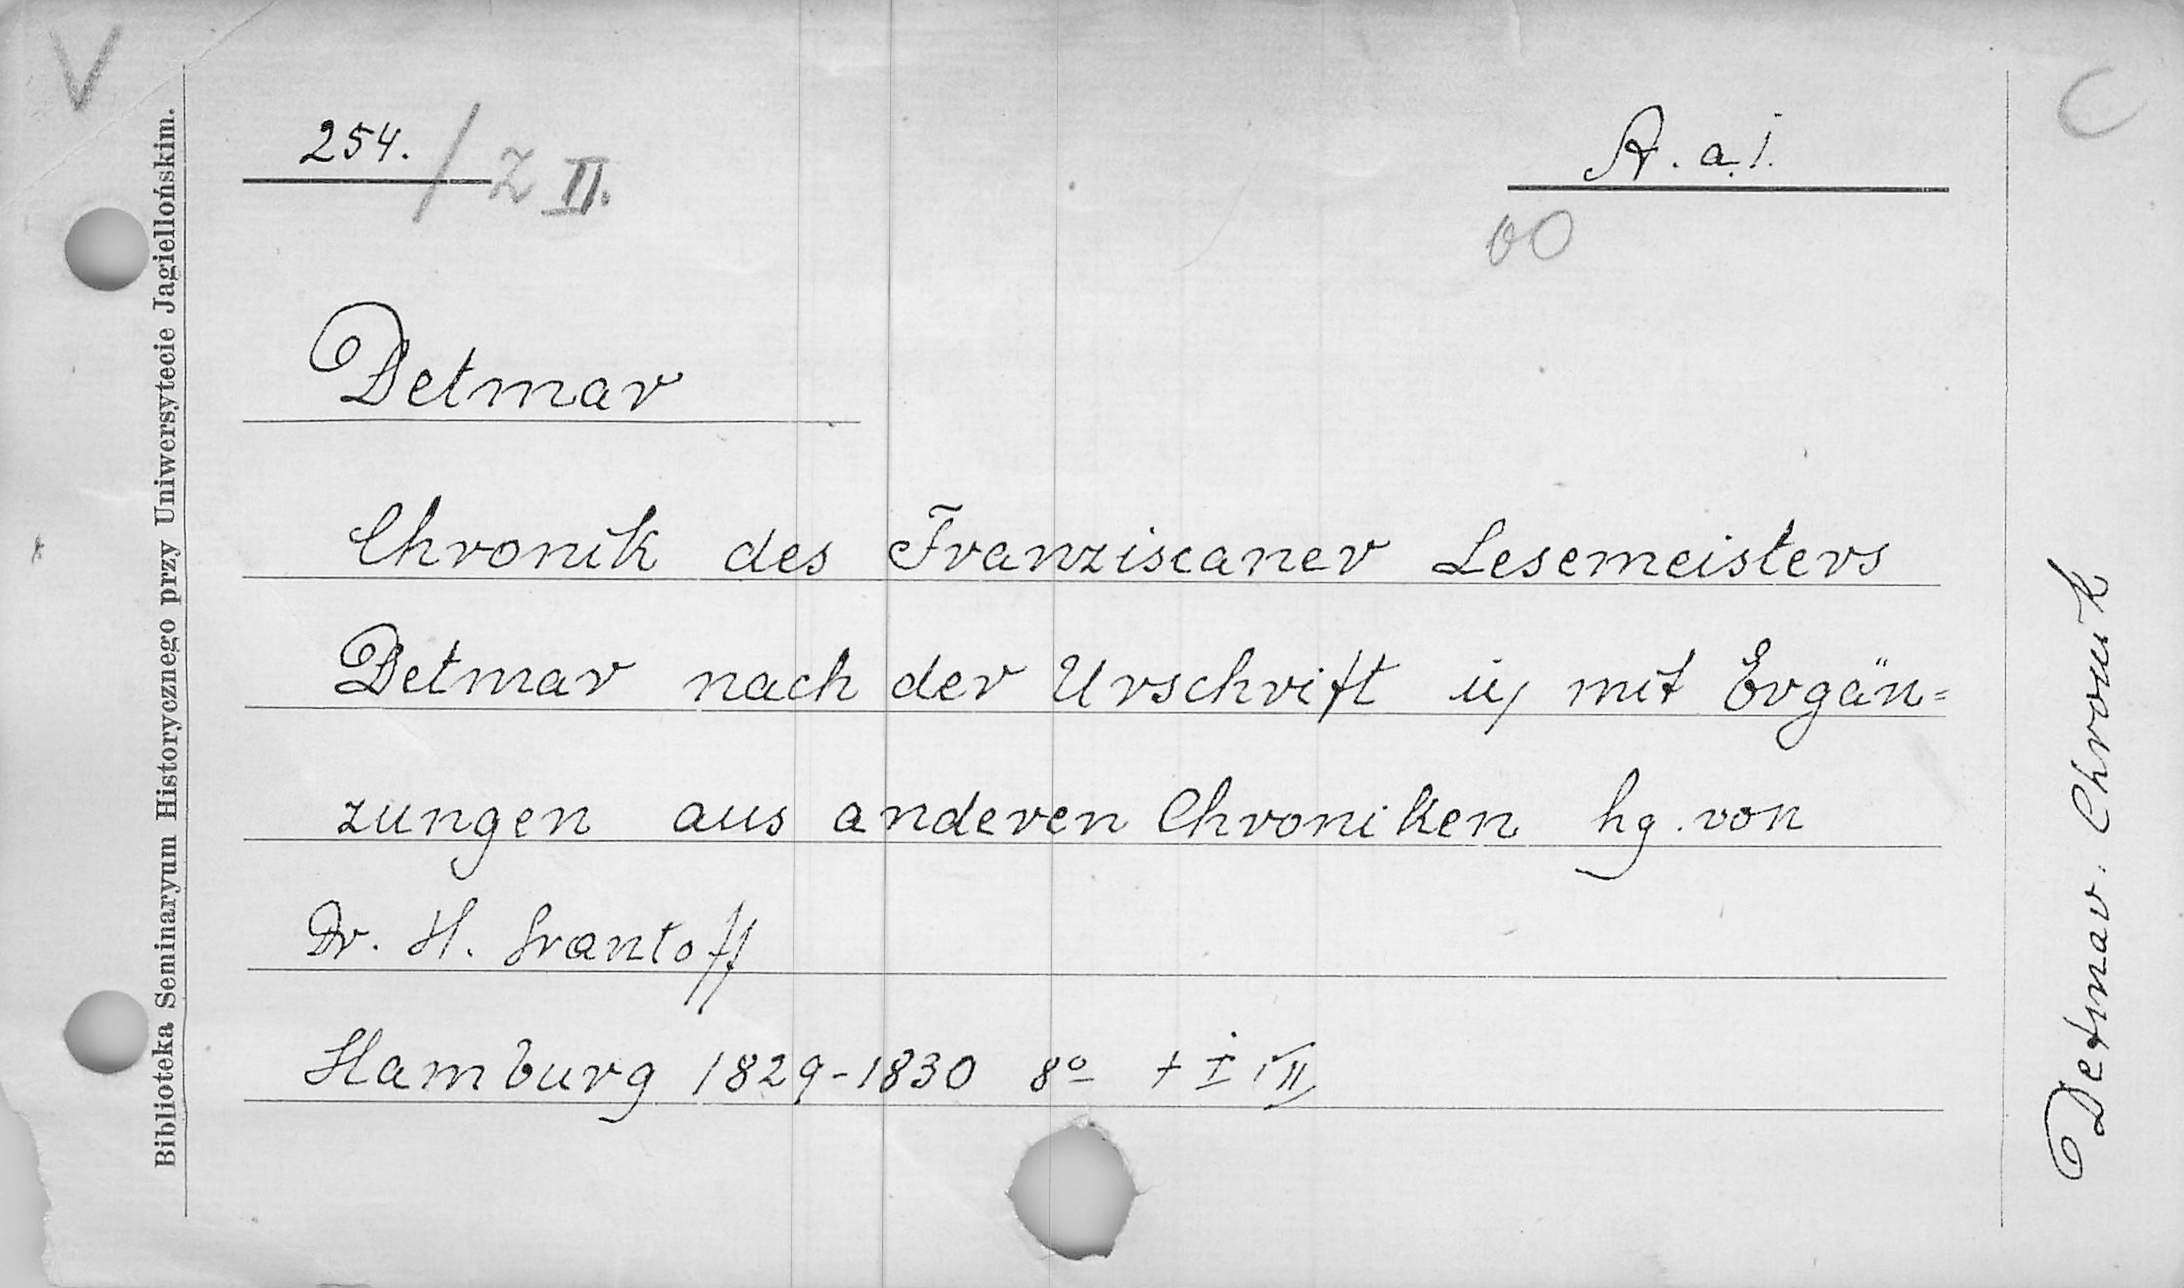 V
C
254. / Z II.
A. a. I.
Detmar
Chronik des Franziscaner Lesemeisters
Detmar nach der Urschrift u, mit Ergän=
zungen aus anderen Chroniken hg. von
Dr. H. Grantoff
Hamburg 1829-1830 8º t I i II
Biblioteka Seminaryum Historycznego przy Uniwersytecie Jagiellońskim.
Detmar: Chronik